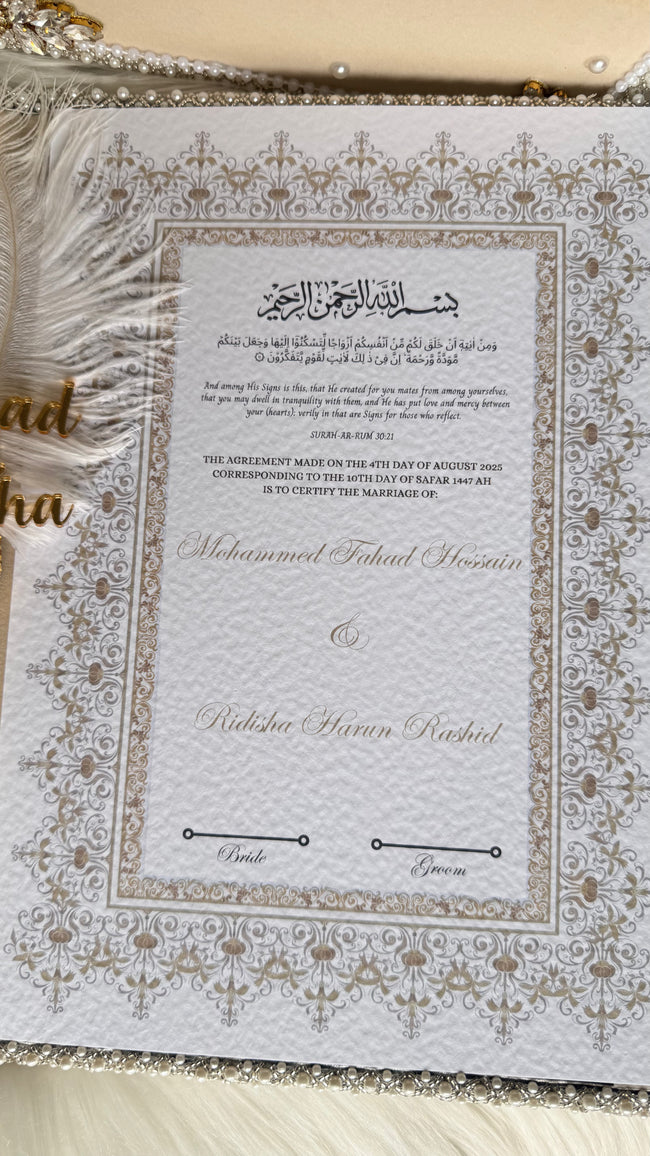 بسم الله الرحمن الرحيم
وَمِنْ اٰيٰتِهٖٓ اَنْ خَلَقَ لَكُمْ مِّنْ اَنْفُسِكُمْ اَزْوَاجًا لِّتَسْكُنُوْٓا اِلَيْهَا وَجَعَلَ بَيْنَكُمْ
مَّوَدَّةً وَّرَحْمَةً ۗ اِنَّ فِيْ ذٰ لِكَ لَاٰيٰتٍ لِّقَوْمٍ يَّتَفَكَّرُوْنَ
And among His Signs is this, that He created for you mates from among yourselves,
that you may dwell in tranquility with them, and He has put love and mercy between
your (hearts); verily in that are Signs for those who reflect.
SURAH-AR-RUM 30:21
THE AGREEMENT MADE ON THE 4TH DAY OF AUGUST 2025
CORRESPONDING TO THE 10TH DAY OF SAFAR 1447 AH
IS TO CERTIFY THE MARRIAGE OF:
ad
ha
Mohammed Fahad Hossain
&
Ridisha Harun Rashid
Bride
Groom